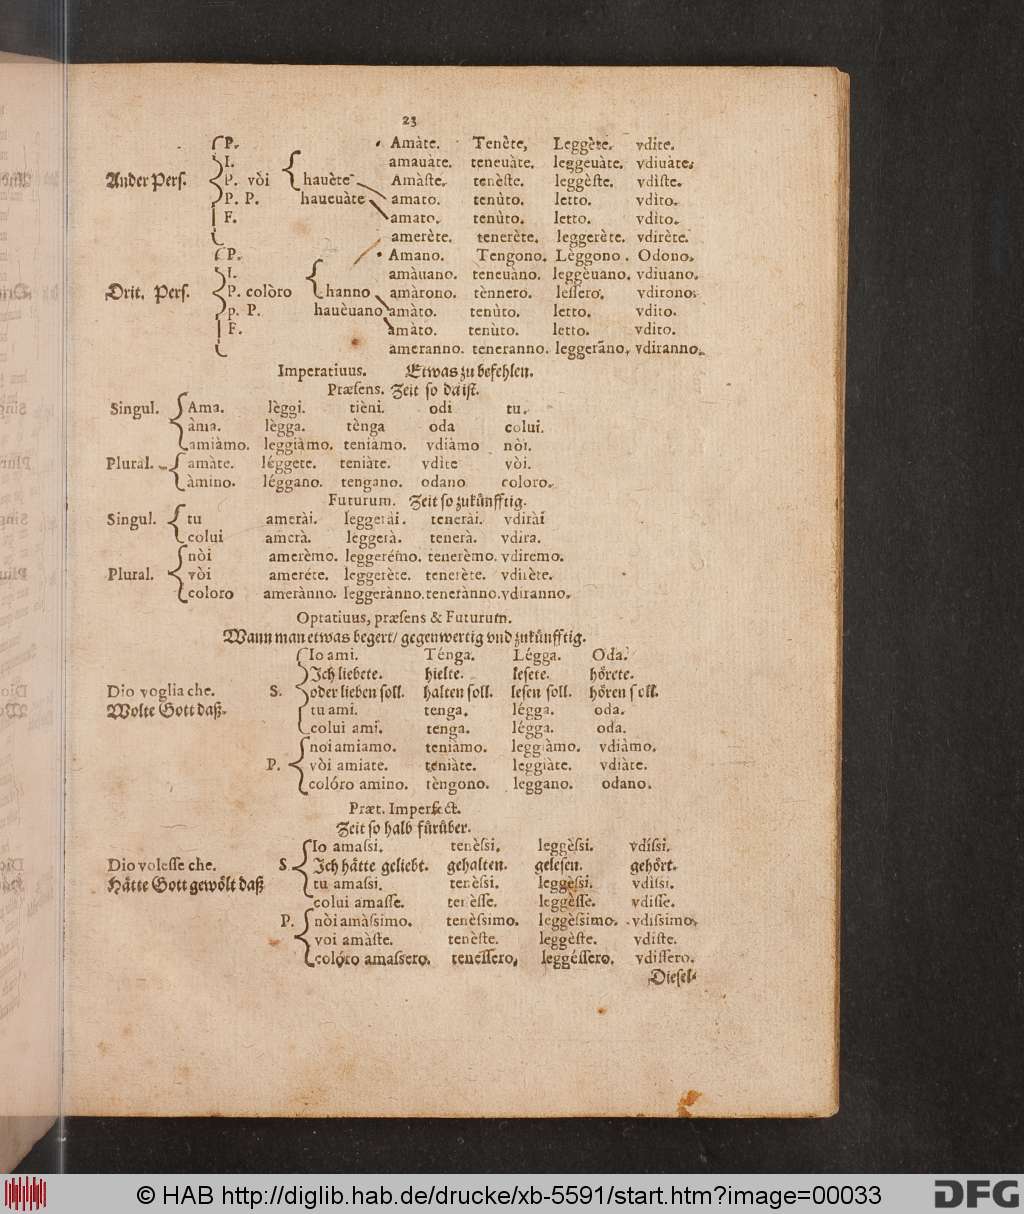 23
P. Amàte. Tenète, Leggète. vdite.
I. amauàte. teneuàte. leggeuàte. vdiuàte.
Ander Pers. P. vòi hauète Amàſte. tenèſte. leggèſte. vdìſte.
P. P. haueuàte amato. tenùto. letto. vdìto.
F. amato. tenùto. letto. vdìto.
amerète. tenerète. leggerète. vdirète.
P. Amano. Tengono. Lèggono. Odono.
I. amàuano. teneuàno. leggèuano. vdiuano.
Drit. Pers. P. colòro hanno amàrono. tènnero. leſſero. vdirono.
p. P. hauèuano amàto. tenùto. letto. vdito.
F. amàto. tenùto. letto. vdito.
ameranno. teneranno. leggerāno. vdiranno.
Imperatiuus. Etwas zu befehlen.
Præſens. Zeit ſo da iſt.
Singul. Ama. lèggi. tièni. odi tu.
àma. lègga. tènga oda colui.
amiàmo. leggiàmo. teniamo. vdiàmo nòi.
Plural. amàte. léggete. teniàte. vdite vòi.
àmino. léggano. tengano. odano coloro.
Futurum. Zeit ſo zukůnfftig.
Singul. tu amerài. leggerài. tenerài. vdirài
colui amerà. leggerà. tenerà. vdira.
nòi amerèmo. leggerémo. tenerèmo. vdiremo.
Plural. vòi ameréte. leggerète. tenerète. vdirète.
coloro amerànno. leggerànno. tenerànno. vdiranno.
Optatiuus, præſens & Futurum.
Wann man etwas begert/ gegenwertig vnd zukůnfftig.
Io ami. Ténga. Légga. Oda.
Ich liebete. hielte. leſete. hőrete.
Dio voglia che. S. oder lieben ſoll. halten ſoll. leſen ſoll. hőren ſoll.
Wolte Gott daß. tu ami. tenga. légga. oda.
colui ami. tenga. légga. oda.
noi amiamo. teniàmo. leggiàmo. vdiàmo.
P. vòi amiate. teniàte. leggiàte. vdiàte.
colóro amino. tèngono. leggano. odano.
Præt. Imperfect.
Zeit ſo halb fůrůber.
Io amaſsi. tenèſsi. leggèſsi. vdíſsi.
Dio voleſſe che. S. Ich hätte geliebt. gehalten. geleſen. gehőrt.
Hätte Gott gewőlt daß tu amaſsi. tenèſsi. leggèſsi. vdìſsi.
colui amaſſe. tenèſſe. leggèſſe. vdiſſe.
P. nòi amàſsimo. tenèſsimo. leggèſsimo. vdiſsimo.
voi amàſte. tenèſte. leggèſte. vdiſte.
colóro amaſsero. teneſſero, leggéſſero. vdiſſero.
Dieſel-
© HAB http://diglib.hab.de/drucke/xb-5591/start.htm?image=00033
DFG